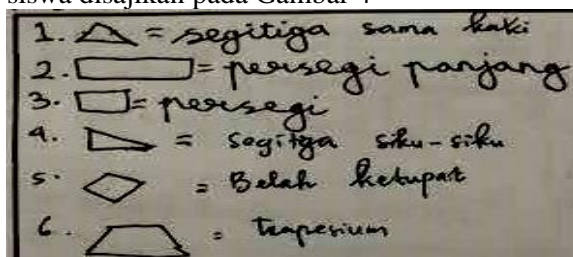 siswa disajikan pada Gambar 4
1. = segitiga sama kaki
2. = persegi panjang
3. = persegi
4. = segitiga siku-siku
5. = Belah ketupat
6. = trapesium